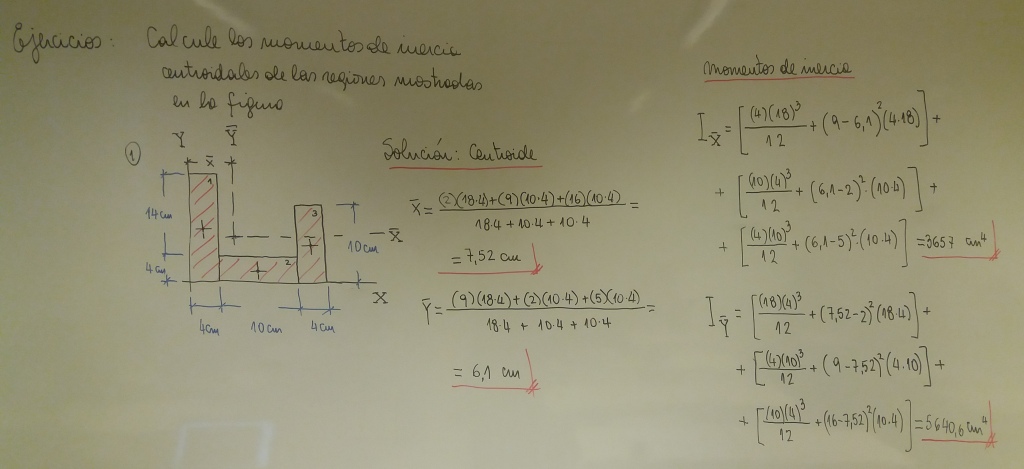 Ejercicios: Calcule los momentos de inercia
centroidales de las regiones mostradas
en la figura
1
Y
Ȳ
x̄
1
14cm
3
10cm
X̄
4cm
2
X
4cm
10cm
4cm
Solución: Centroide
X̄ = (2)(18·4)+(9)(10·4)+(16)(10·4) / 18·4 + 10·4 + 10·4 =
= 7,52 cm
Ȳ = (9)(18·4)+(2)(10·4)+(5)(10·4) / 18·4 + 10·4 + 10·4 =
= 6,1 cm
momentos de inercia
I_X̄ = [(4)(18)³/12 + (9-6,1)²(4·18)] +
+ [(10)(4)³/12 + (6,1-2)²·(10·4)] +
+ [(4)(10)³/12 + (6,1-5)²·(10·4)] = 3657 cm⁴
I_Ȳ = [(18)(4)³/12 + (7,52-2)²(18·4)] +
+ [(4)(10)³/12 + (9-7,52)²(4·10)] +
+ [(10)(4)³/12 + (16-7,52)²(10·4)] = 5640,6 cm⁴